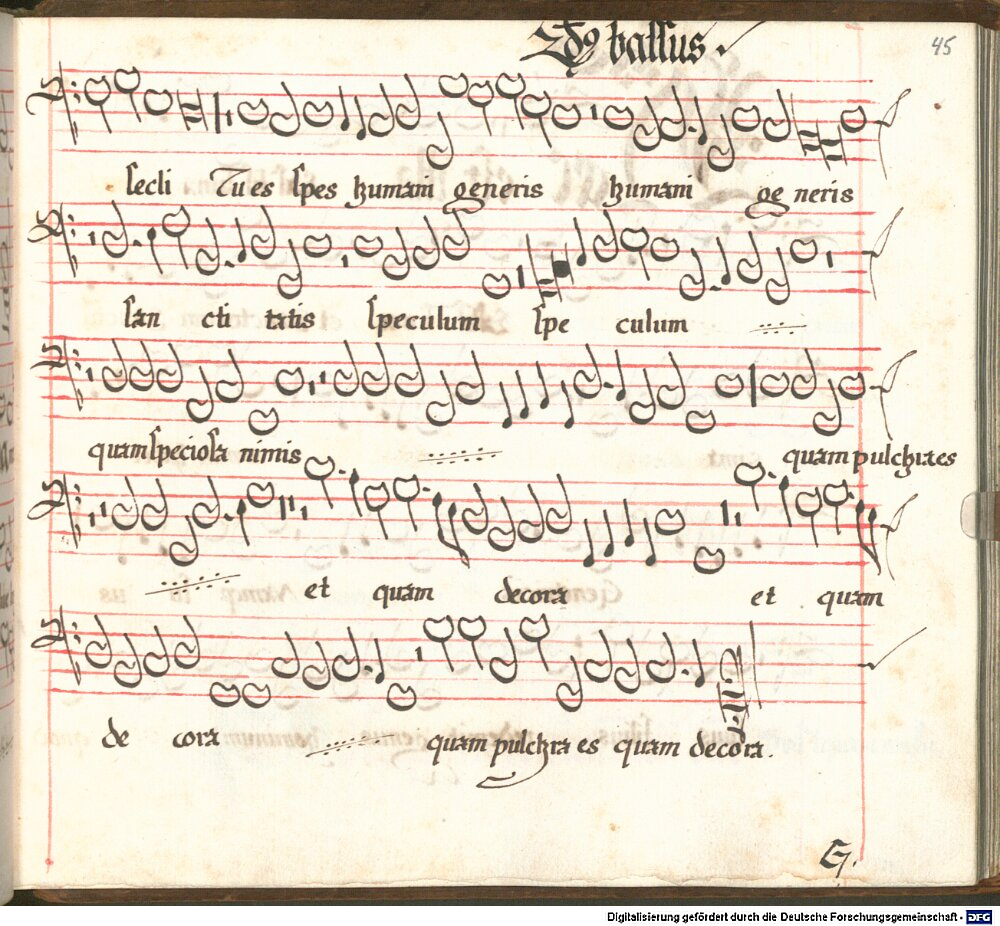 bassus.
45
secli Tu es spes humani generis humani ge neris
san cti tatis speculum spe culum
quam speciosa nimis quam pulchra es
et quam decora et quam
de cora quam pulchra es quam decora.
G.
Digitalisierung gefördert durch die Deutsche Forschungsgemeinschaft - DFG